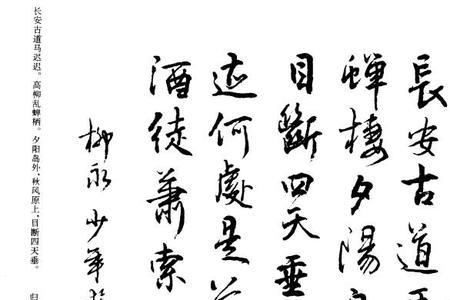 長安古道
蟬棲夕陽
目斷四天垂
迹何處是
酒徒蕭索
柳永少年
长安古道马迟迟。高柳乱蝉栖。夕阳岛外，秋风原上，目断四天垂。
归